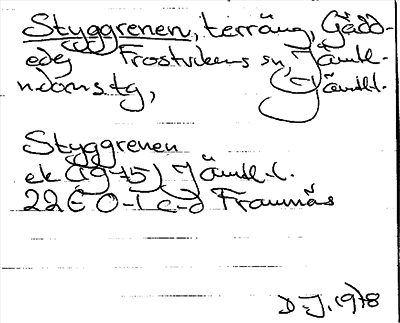 Styggrenen, terräng, Gädd-
ede, Frostvikens sn, Jämtl-
n.domstg, Jämtl.l.
Styggrenen
ek (1975) Jämtl.l.
22E 0-1 c-d Frannäs
D.J. 1978